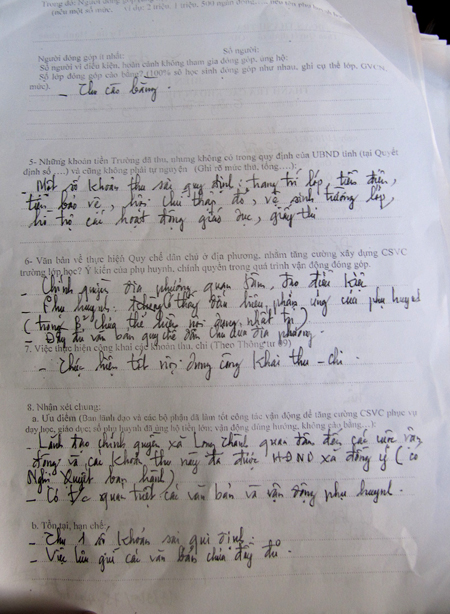 Trong đó: Người đóng góp
(nêu một số mức. Ví dụ: 2 triệu, 1 triệu, 500 ngàn đồng,
Người đóng góp ít nhất: Số người:
Số người vì điều kiện, hoàn cảnh không tham gia đóng góp, ủng hộ:
Số lớp đóng góp cân bằng? (100% số học sinh đóng góp như nhau, ghi cụ thể lớp, GVCN,
mức).
- Thu cào bằng.
5- Những khoản tiền Trường đã thu, nhưng không có trong quy định của UBND tỉnh (tại Quyết
định số ,...) và cũng không phải tự nguyện (Ghi rõ mức thu, tổng....):
- Một số khoản thu sai quy định: trang trí lớp, tiền điện,
tiền bảo vệ, hội chữ thập đỏ, vệ sinh trường lớp,
hỗ trợ các hoạt động giáo dục, giấy thi
6- Văn bản về thực hiện Quy chế dân chủ ở địa phương, nhằm tăng cường xây dựng CSVC
trường lớp học? Ý kiến của phụ huynh, chính quyền trong quá trình vận động đóng góp.
- Chính quyền địa phương quan tâm, tạo điều kiện
- Phụ huynh: không thấy dấu hiệu phản ứng của phụ huynh
(trong chưa thể hiện nội dung nhất trí)
- Đầy đủ văn bản quy chế dân chủ của địa phương.
7. Việc thực hiện công khai các khoản thu, chi (Theo Thông tư 09)
- Thực hiện tốt nội dung công khai thu - chi.
8. Nhận xét chung:
a. Ưu điểm (Ban lãnh đạo và các bộ phận đã làm tốt công tác vận động để tăng cường CSVC phục vụ
dạy học, giáo dục; số phụ huynh đã ủng hộ tiền lớn; vận động đúng hướng, không cào bằng...):
- Lãnh đạo chính quyền xã Long Thành quan tâm đến các cuộc vận
động và các khoản thu này đã được HĐND xã đồng ý (có
Nghị Quyết ban hành)
- Có t/c quan triệt các văn bản và vận động phụ huynh.
b. Tồn tại, hạn chế:
- Thu 1 số khoản sai qui định.
- Việc lưu giữ các văn bản chưa đầy đủ.